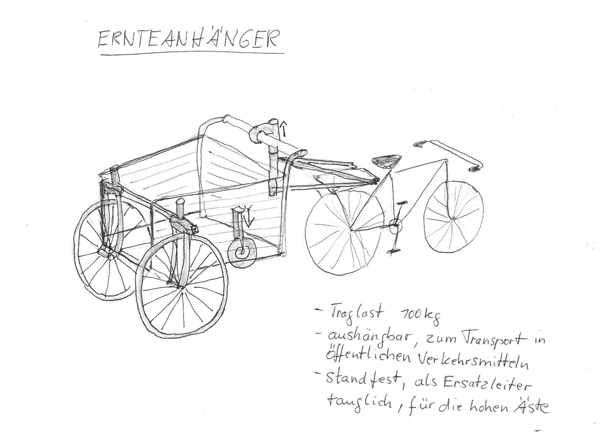 ERNTEANHÄNGER
- Traglast 100kg
- aushängbar, zum Transport in
öffentlichen Verkehrsmitteln
- standfest, als Ersatzleiter
tauglich, für die hohen Äste